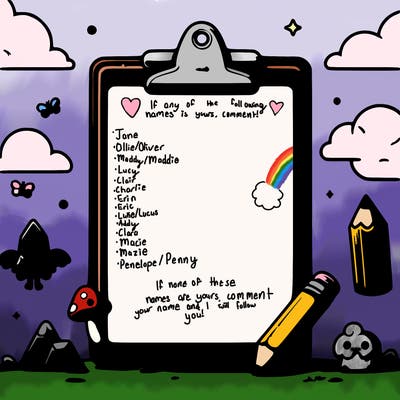 If any of the following
names is yours, comment!
·Jane
·Ollie/Oliver
·Maddy/Maddie
·Lucy
·Clair
·Charlie
·Erin
·Eric
·Luke/Lucus
·Addy
·Clara
·Macie
·Mazie
·Penelope/Penny
If none of these
names are yours, comment
your name and I will follow
you!